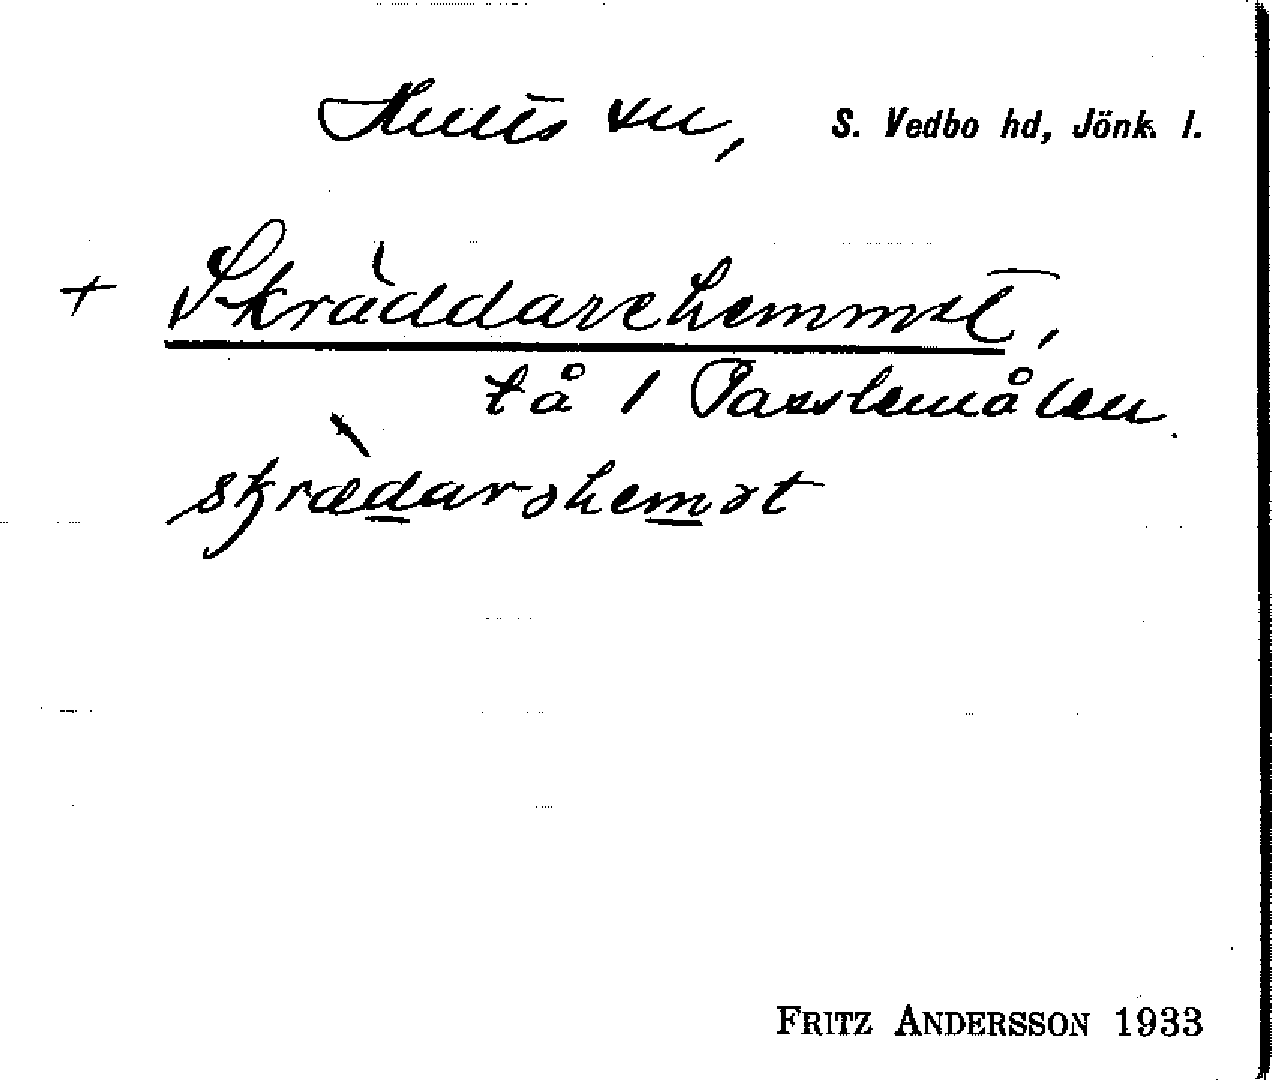 Hults sn, S. Vedbo hd, Jönk. l.
+ Skräddarehemmet,
tå / Passlemålen.
skrædarəhemət
FRITZ ANDERSSON 1933